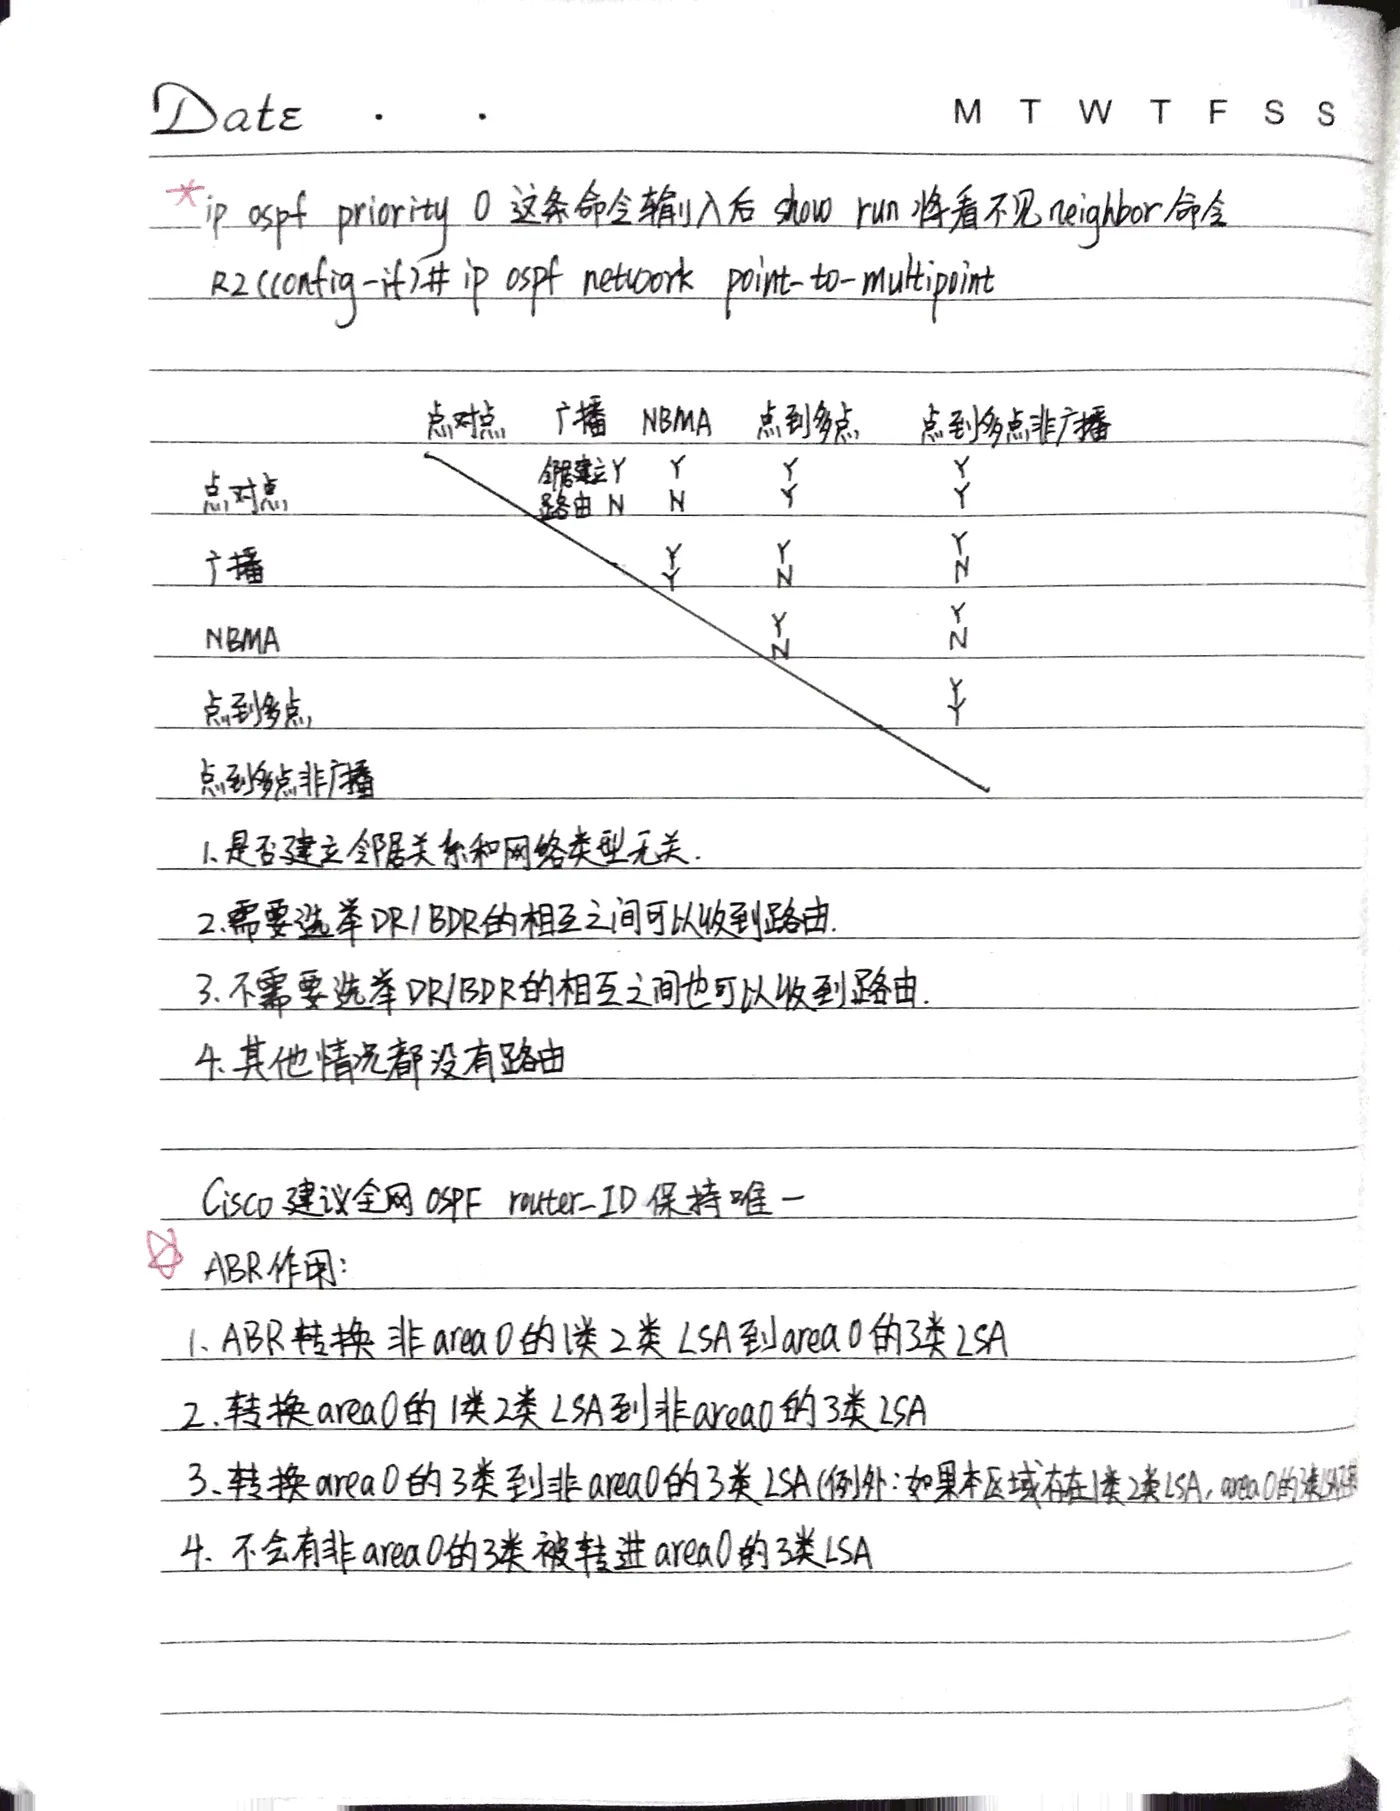 Date . .    M T W T F S S
*ip ospf priority 0 这条命令输入后 show run 将看不见neighbor命令
R2(config-if)# ip ospf network point-to-multipoint
点对点 广播 NBMA 点到多点 点到多点非广播
点对点 邻居建立Y Y Y Y
路由 N N Y Y
广播 Y Y Y
Y N N
NBMA Y Y
N N
点到多点 Y
Y
点到多点非广播
1.是否建立邻居关系和网络类型无关.
2.需要选举DR/BDR的相互之间可以收到路由.
3.不需要选举DR/BDR的相互之间也可以收到路由.
4.其他情况都没有路由
Cisco 建议全网 OSPF router-ID 保持唯一
ABR作用:
1. ABR转换 非area0的1类2类LSA到area0的3类LSA
2.转换area0的1类2类LSA到非area0的3类LSA
3.转换area0的3类到非area0的3类LSA(例外:如果本区域存在1类2类LSA,area0的3类LSA
4. 不会有非area0的3类被转进area0的3类LSA